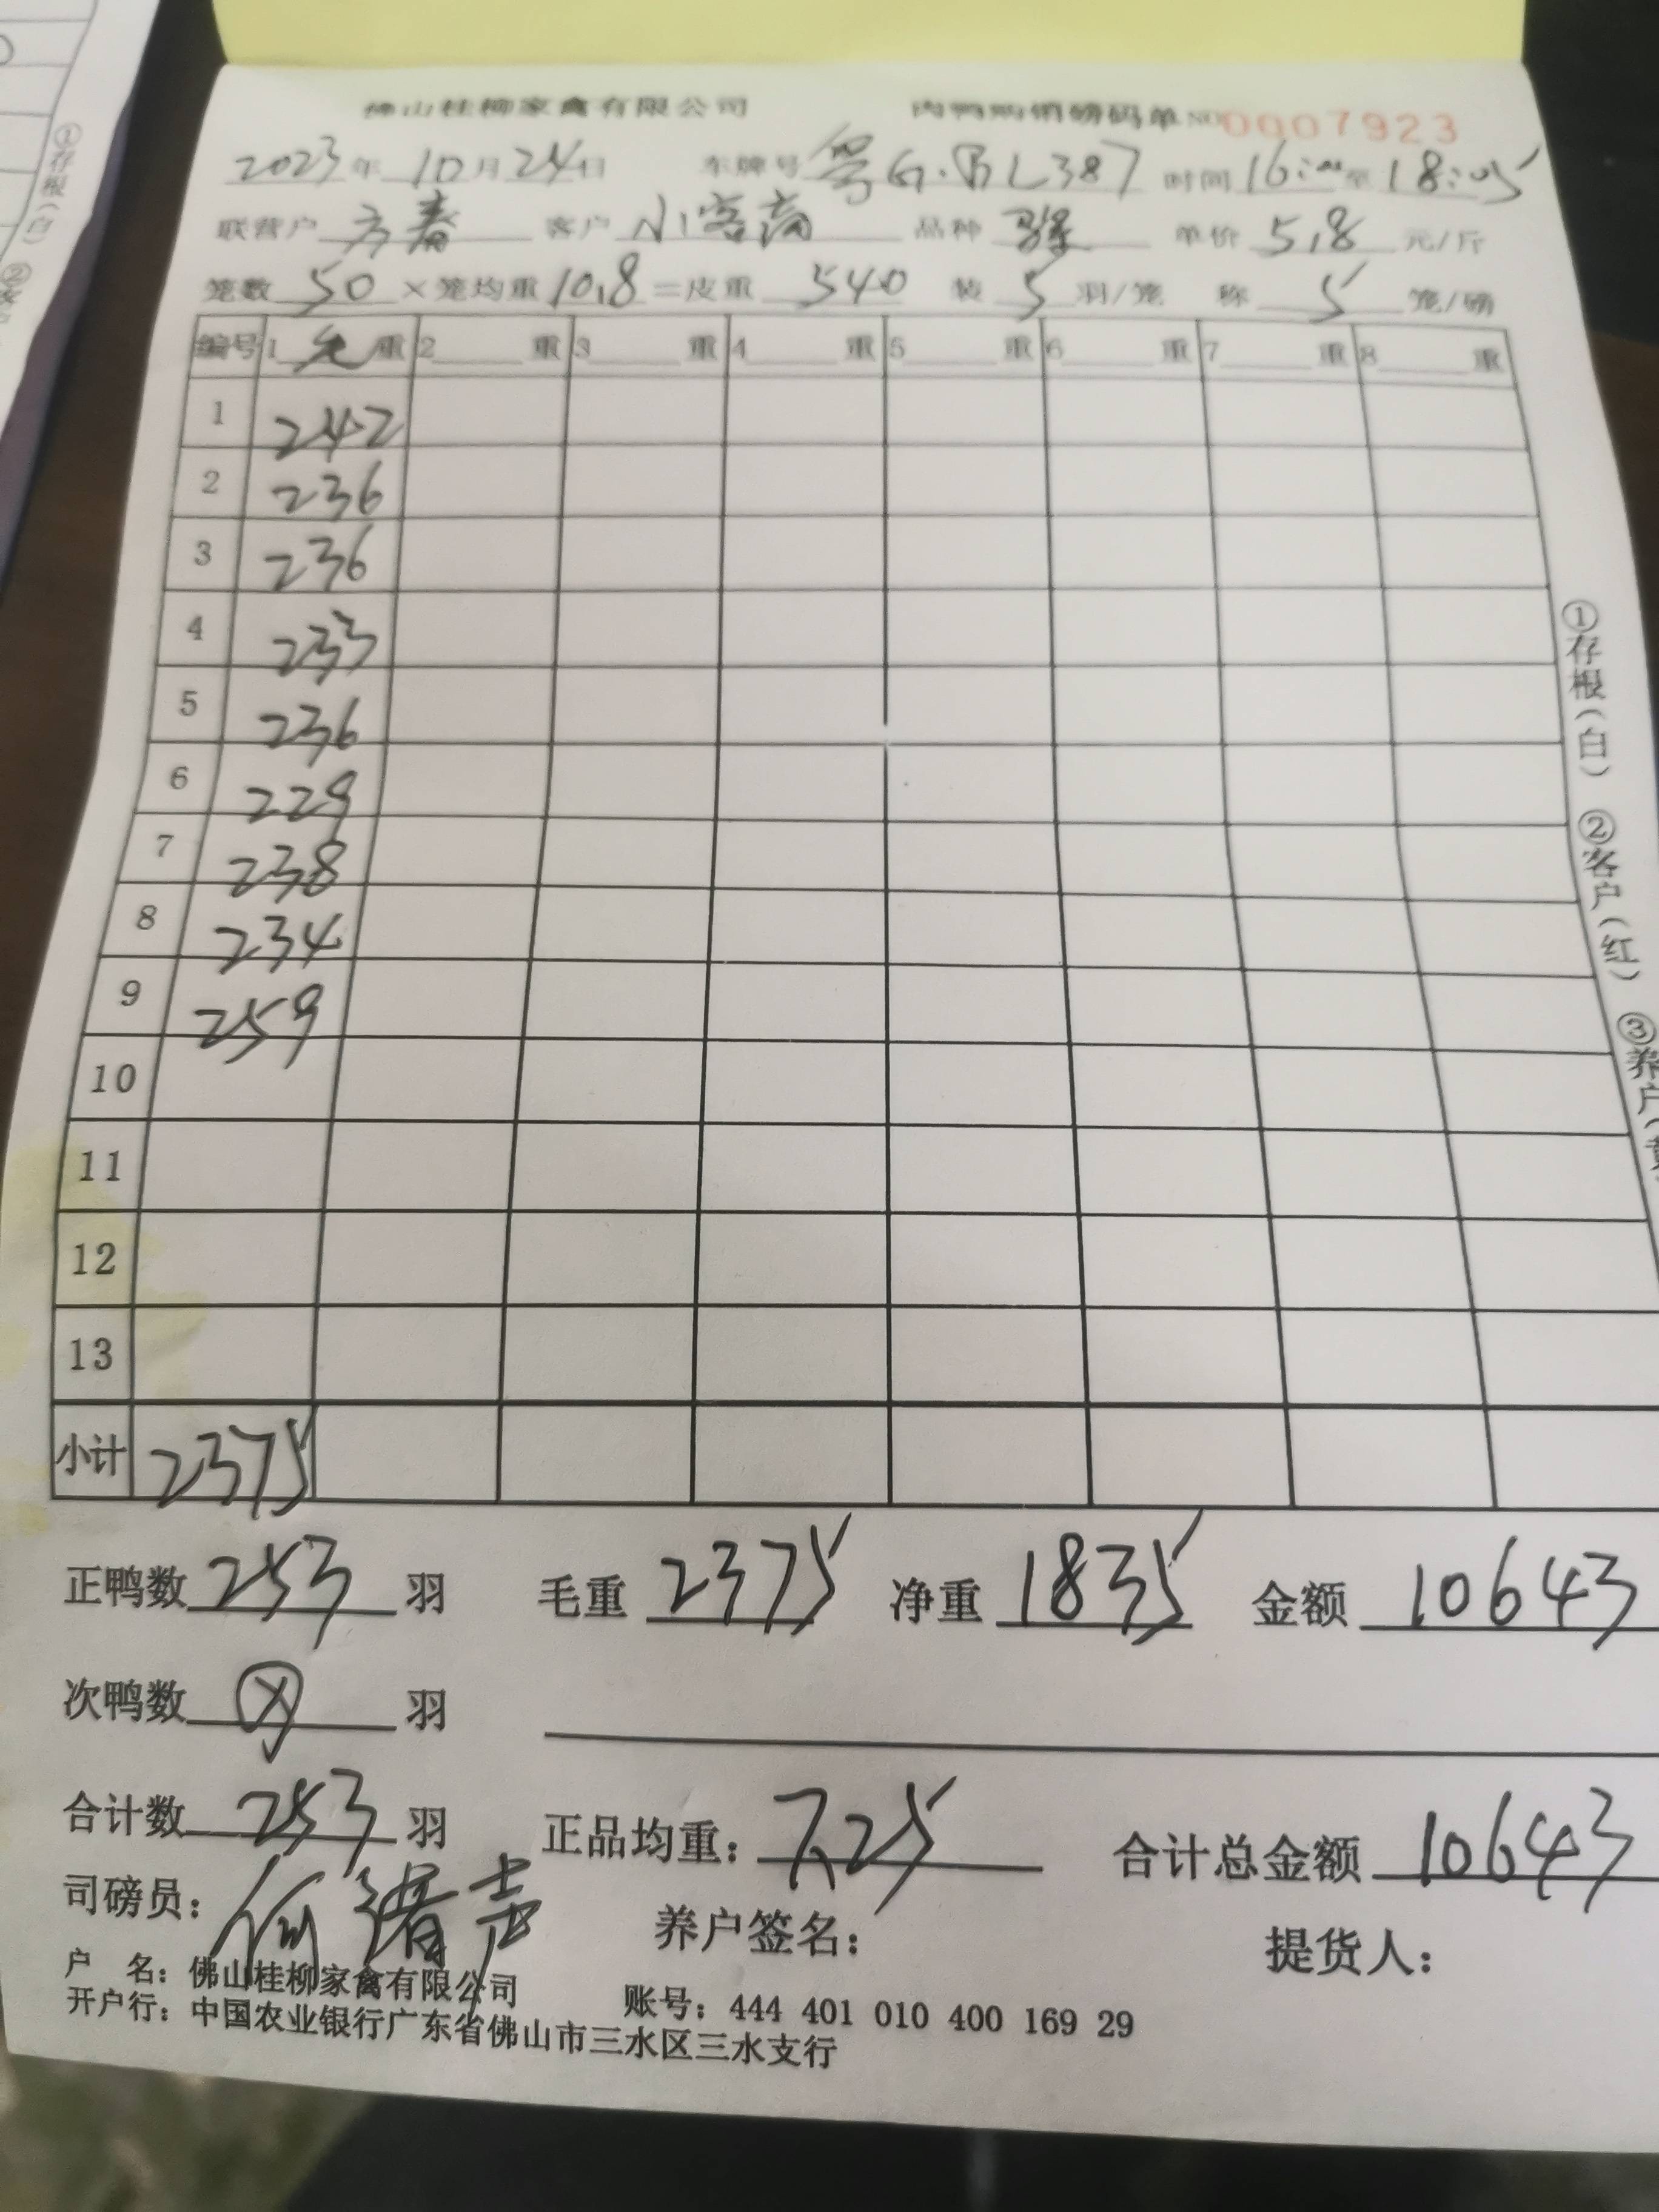 佛山桂柳家禽有限公司 肉鸭购销磅码单 NO 0007923
2023年 10月 24日 车牌号 粤G·BL387 时间 16:00至 18:05
联营户 客户 品种 单价 5.8 元/斤
笼数 50 ×笼均重 10.8 =皮重 540 装 5 羽/笼 称 5 笼/磅
编号 1 毛 重 2 重 3 重 4 重 5 重 6 重 7 重 8 重
1 242
2 236
3 236
4 233
5 236
6 229
7 238
8 234
9 259
10
11
12
13
小计 2375
正鸭数 253 羽 毛重 2375 净重 1835 金额 10643
次鸭数 羽
合计数 253 羽 正品均重: 7.25 合计总金额 10643
司磅员: 养户签名: 提货人:
户 名: 佛山桂柳家禽有限公司 账号: 444 401 010 400 169 29
开户行: 中国农业银行广东省佛山市三水区三水支行
①存根(白) ②客户(红) ③养户(
①存根(白) ②